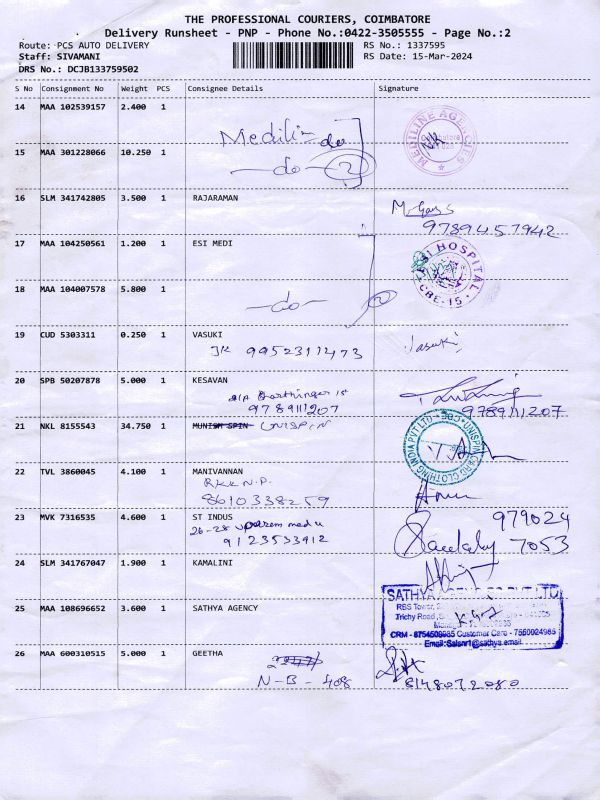 THE PROFESSIONAL COURIERS, COIMBATORE
Delivery Runsheet - PNP - Phone No.:0422-3505555 - Page No.:2
Route: PCS AUTO DELIVERY RS No.: 1337595
Staff: SIVAMANI RS Date: 15-Mar-2024
DRS No.: DCJB133759502
S No Consignment No Weight PCS Consignee Details Signature
14 MAA 102539157 2.400 1
do
MEDILINE AGENCIES
15 MAA 301228066 10.250 1
- do - 2
16 SLM 341742805 3.500 1 RAJARAMAN
9789457942
17 MAA 104250561 1.200 1 ESI MEDI
HOSPITAL CBE-15
18 MAA 104007578 5.800 1
- do - 2
19 CUD 5303311 0.250 1 VASUKI Vasuki
9952311473
20 SPB 50207878 5.000 1 KESAVAN
9789111207 9789111207
21 NKL 8155543 34.750 1 MUNISH SPIN UNISPIN
UNISPIN CARD CLOTHING INDIA PVT LTD CBE
22 TVL 3860045 4.100 1 MANIVANNAN
8610338259
23 MVK 7316535 4.600 1 ST INDUS 979024
26-28 7053
9123533912
24 SLM 341767047 1.900 1 KAMALINI
25 MAA 108696652 3.600 1 SATHYA AGENCY
SATHYA AGENCIES PVT LTD
RBS Tower,
Trichy Road,
CRM - 8754509985 Customer Care - 7550024985
26 MAA 600310515 5.000 1 GEETHA
N-B-408 8148072080